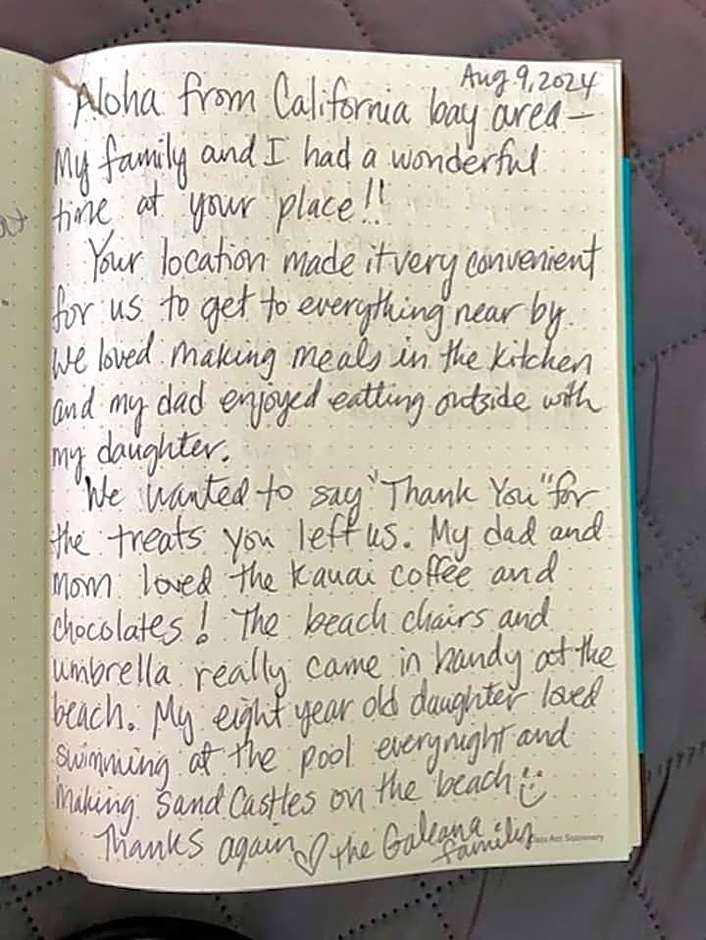 Aug 9, 2024
Aloha from California bay area –
My family and I had a wonderful
time at your place!!
Your location made it very convenient
for us to get to everything near by.
We loved making meals in the kitchen
and my dad enjoyed eatting outside with
my daughter.
We wanted to say "Thank You" for
the treats you left us. My dad and
mom loved the Kauai coffee and
chocolates! The beach chairs and
umbrella really came in handy at the
beach. My eight year old daughter loved
swimming at the pool everynight and
making Sand Castles on the beach
Thanks again ♡ the Galeana
family
Class Act Stationery